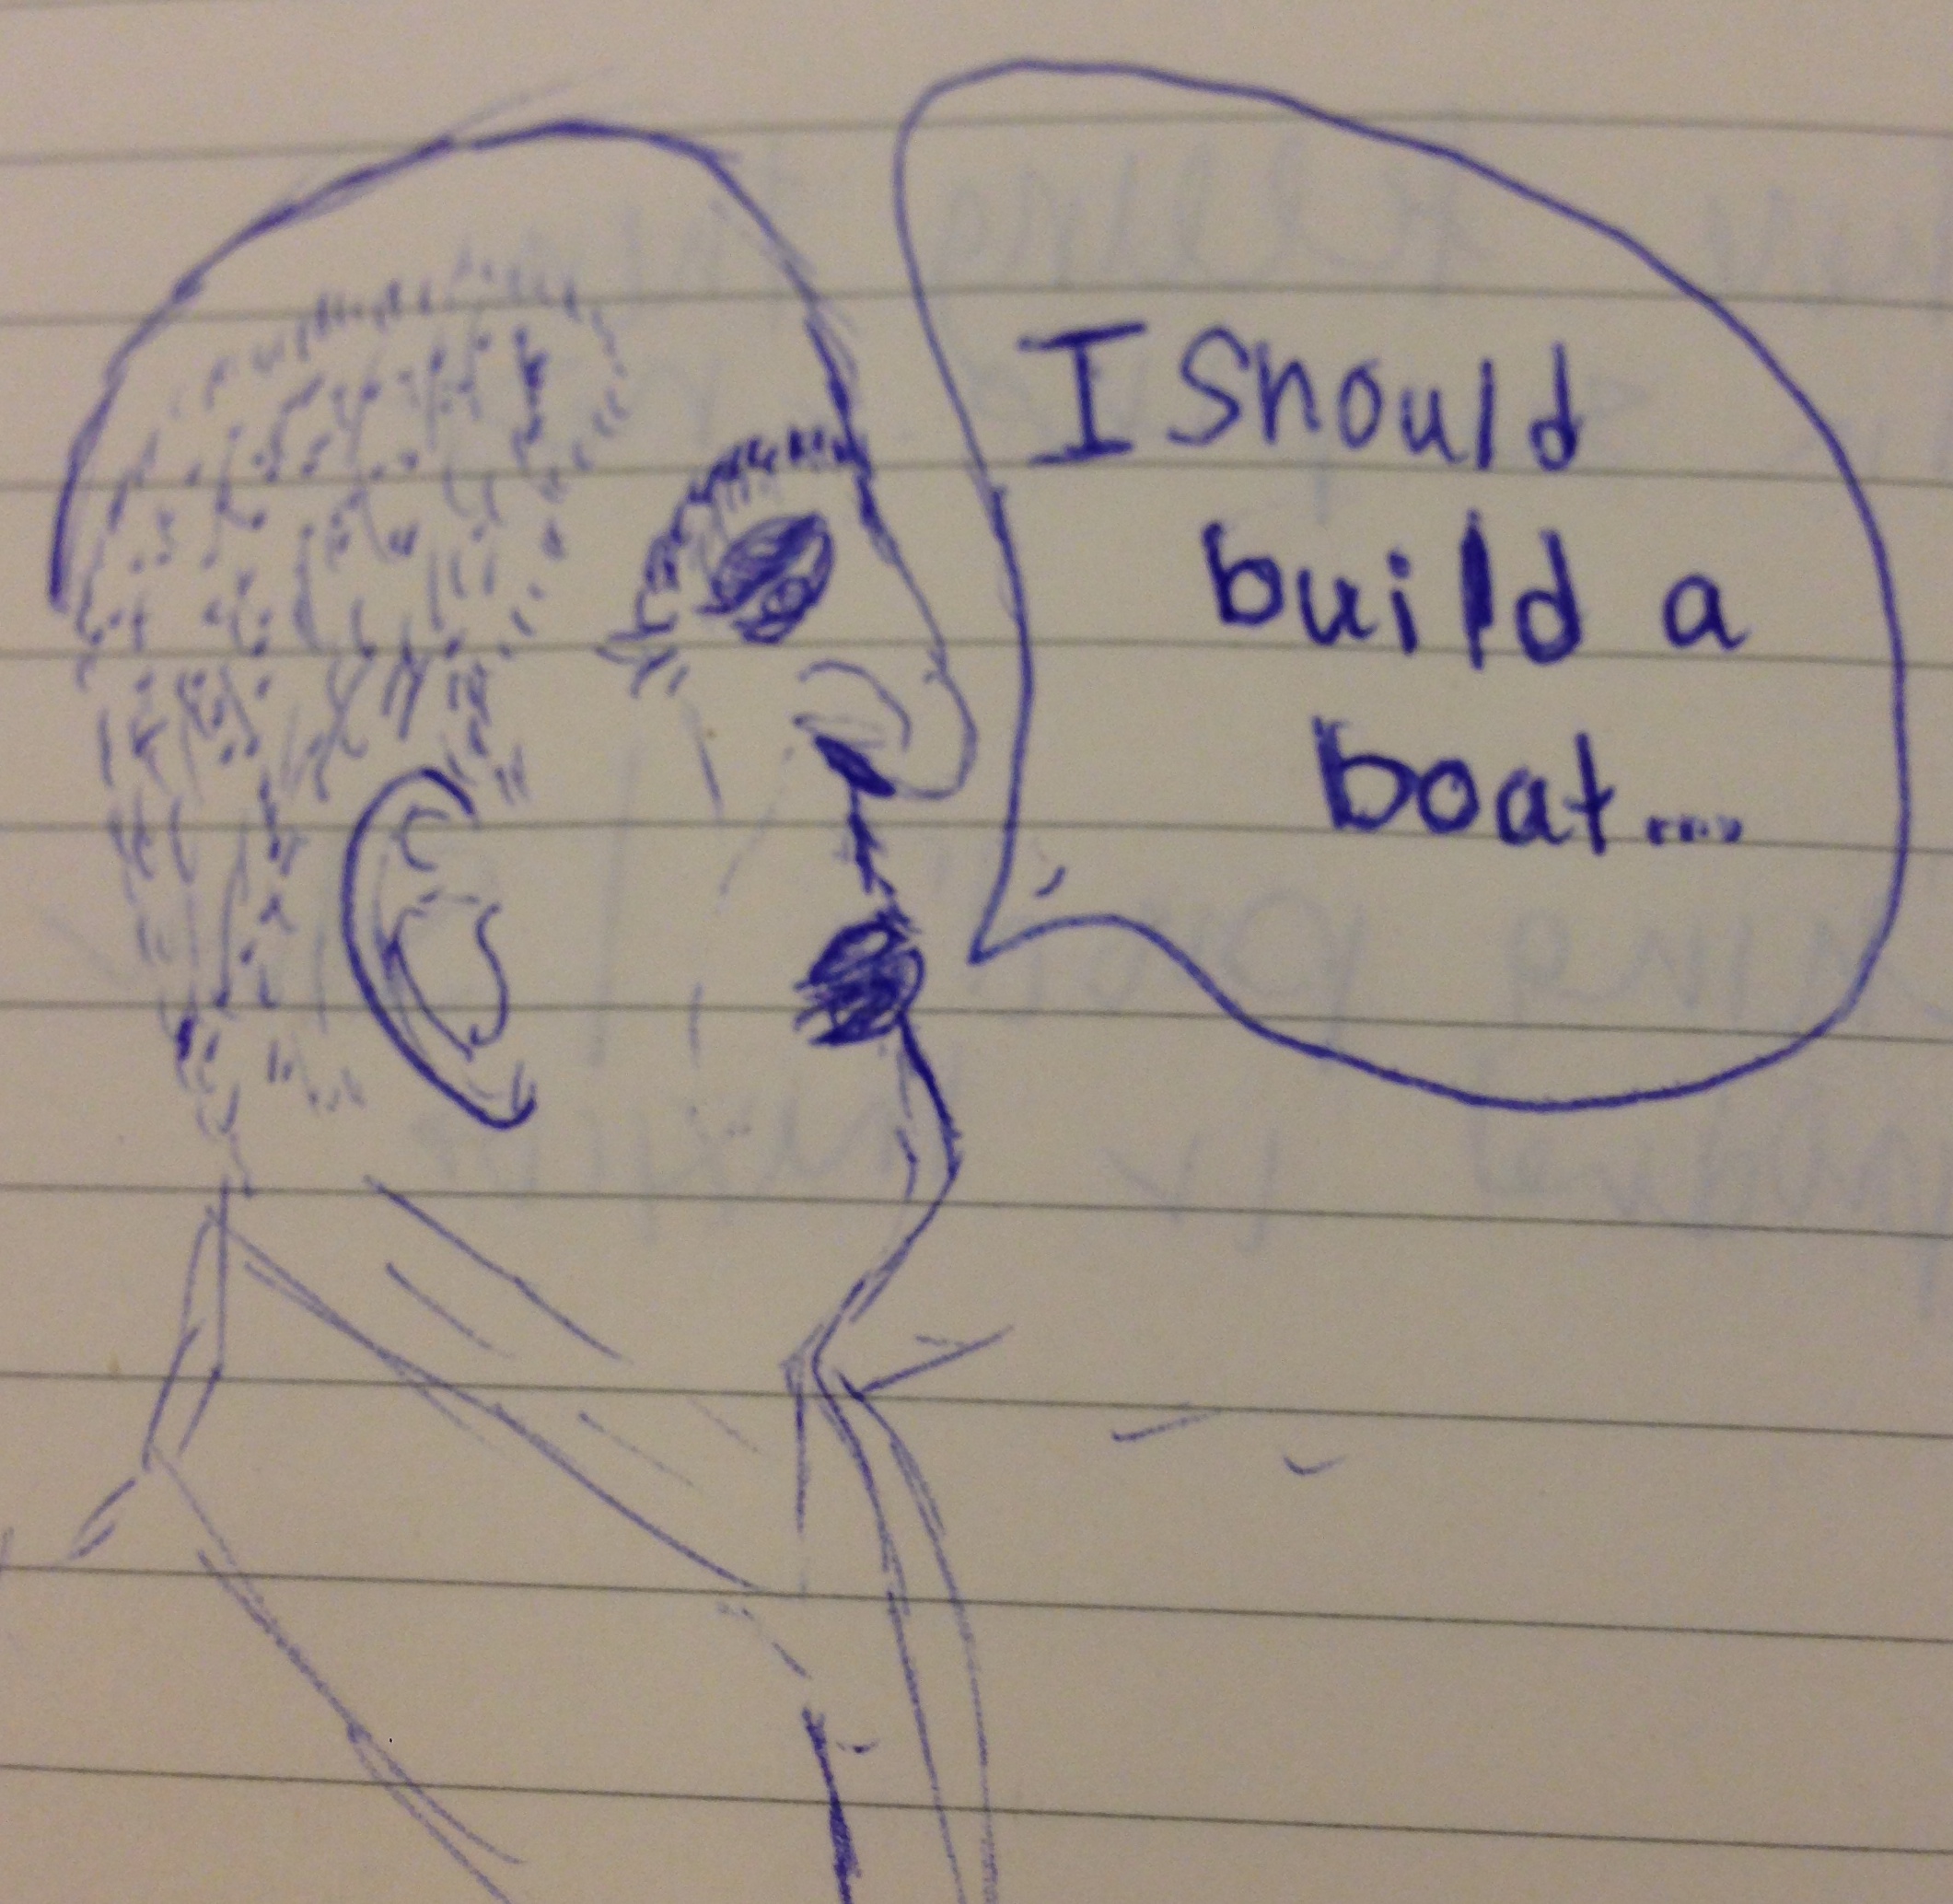 I Should
build a
boat....